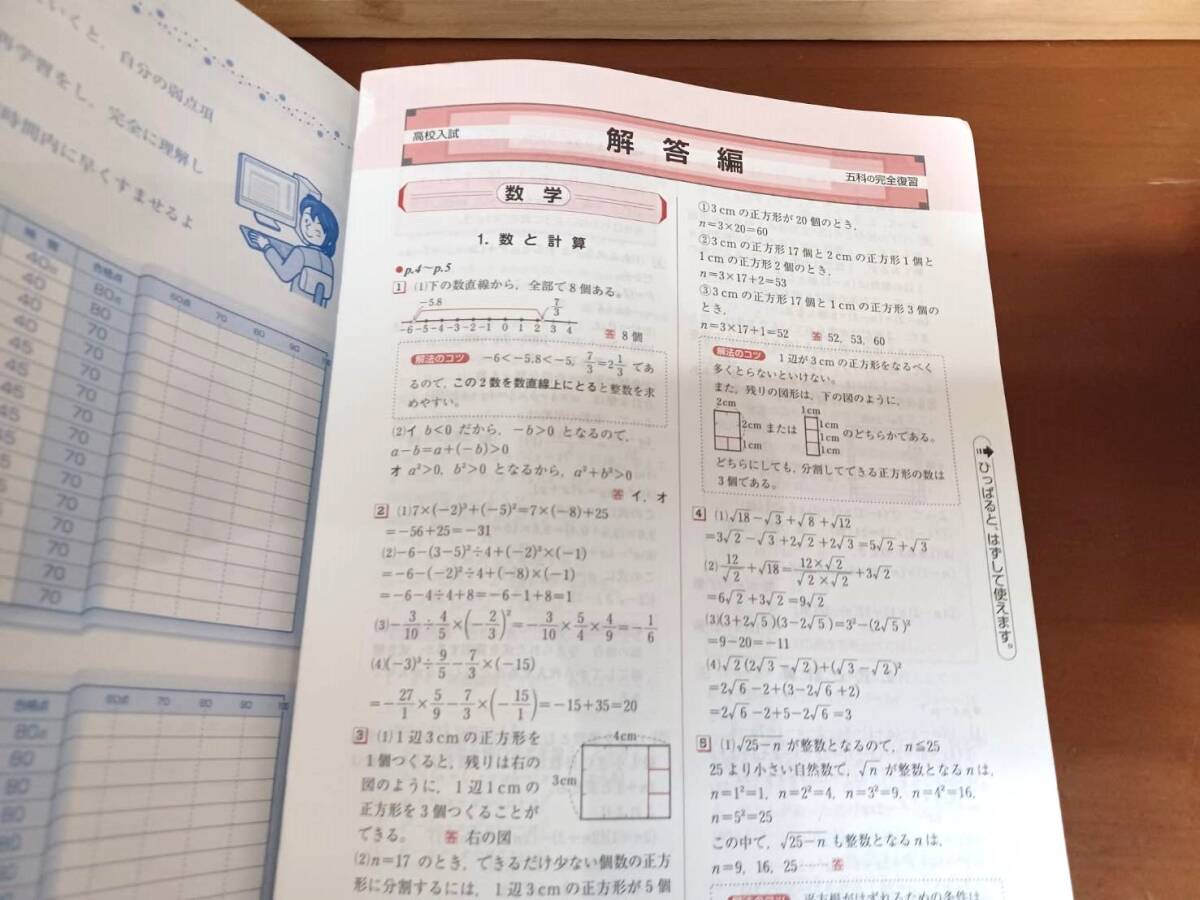 いくと、自分の弱点項
再学習をし、完全に理解し
時間内に早くすませるよ
検 習
合格点
60点
70
80
90
40点
80点
40
80
40
70
40
70
45
70
45
70
45
70
45
70
70
70
70
70
合格点
60点
70
80
90
80点
80
80
80
80
高校入試
解答編
五科の完全復習
数 学
1. 数 と 計 算
●p.4〜p.5
1 (1)下の数直線から、全部で8個ある。
−5.8 7/3
−6−5−4−3−2−1 0 1 2 3 4
答 8個
解法のコツ −6<−5.8<−5, 7/3=2 1/3 であ
るので、この2数を数直線上にとると整数を求
めやすい。
(2)イ b<0 だから、−b>0 となるので、
a−b=a+(−b)>0
オ a²>0, b²>0 となるから、a²+b²>0
答 イ, オ
2 (1)7×(−2)³+(−5)²=7×(−8)+25
=−56+25=−31
(2)−6−(3−5)²÷4+(−2)³×(−1)
=−6−(−2)²÷4+(−8)×(−1)
=−6−4÷4+8=−6−1+8=1
(3)−3/10÷4/5×(−2/3)²=−3/10×5/4×4/9=−1/6
(4)(−3)³÷9/5−7/3×(−15)
=−27/1×5/9−7/3×(−15/1)=−15+35=20
3 (1)1辺3cmの正方形を
1個つくると、残りは右の
図のように、1辺1cmの
正方形を3個つくることが
できる。 答 右の図
4cm
3cm
(2)n=17 のとき、できるだけ少ない個数の正方
形に分割するには、1辺3cmの正方形が5個
①3cmの正方形が20個のとき、
n=3×20=60
②3cmの正方形17個と2cmの正方形1個と
1cmの正方形2個のとき、
n=3×17+2=53
③3cmの正方形17個と1cmの正方形3個の
とき、
n=3×17+1=52 答 52, 53, 60
解法のコツ 1辺が3cmの正方形をなるべく
多くとらないといけない。
また、残りの図形は、下の図のように、
2cm
2cm
1cm
または
1cm
1cm
1cm
1cm
のどちらかである。
どちらにしても、分割してできる正方形の数は
3個である。
4 (1)√18−√3+√8+√12
=3√2−√3+2√2+2√3=5√2+√3
(2)12/√2+√18=12×√2/√2×√2+3√2
=6√2+3√2=9√2
(3)(3+2√5)(3−2√5)=3²−(2√5)²
=9−20=−11
(4)√2(2√3−√2)+(√3−√2)²
=2√6−2+(3−2√6+2)
=2√6−2+5−2√6=3
5 (1)√25−n が整数となるので、n≦25
25より小さい自然数で、√n が整数となるnは、
n=1²=1, n=2²=4, n=3²=9, n=4²=16,
n=5²=25
この中で、√25−n も整数となるnは、
n=9, 16, 25……答
解法のコツ 平方根がはずれるための条件は
ひっぱると、はずして使えます。